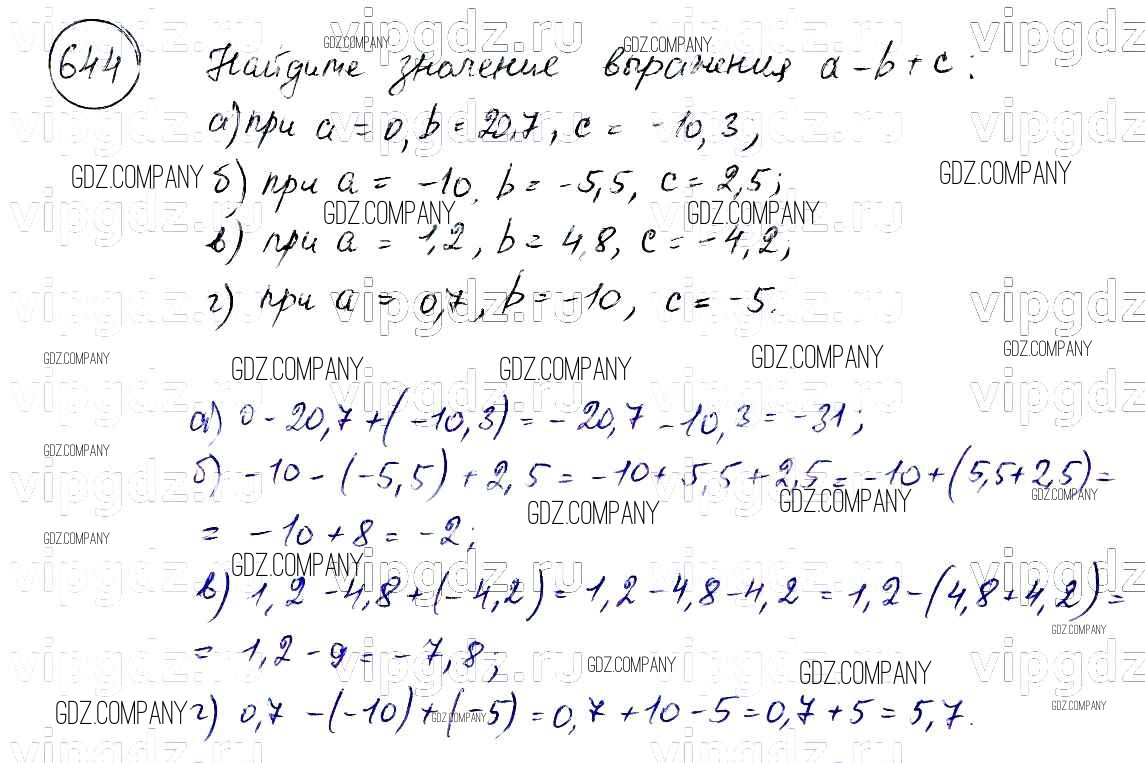 644 Найдите значение выражения a - b + c:
а) при a = 0, b = 20,7, c = -10,3;
б) при a = -10, b = -5,5, c = 2,5;
в) при a = 1,2, b = 4,8, c = -4,2;
г) при a = 0,7, b = -10, c = -5.
а) 0 - 20,7 + (-10,3) = -20,7 - 10,3 = -31;
б) -10 - (-5,5) + 2,5 = -10 + 5,5 + 2,5 = -10 + (5,5 + 2,5) =
= -10 + 8 = -2;
в) 1,2 - 4,8 + (-4,2) = 1,2 - 4,8 - 4,2 = 1,2 - (4,8 + 4,2) =
= 1,2 - 9 = -7,8;
г) 0,7 - (-10) + (-5) = 0,7 + 10 - 5 = 0,7 + 5 = 5,7.